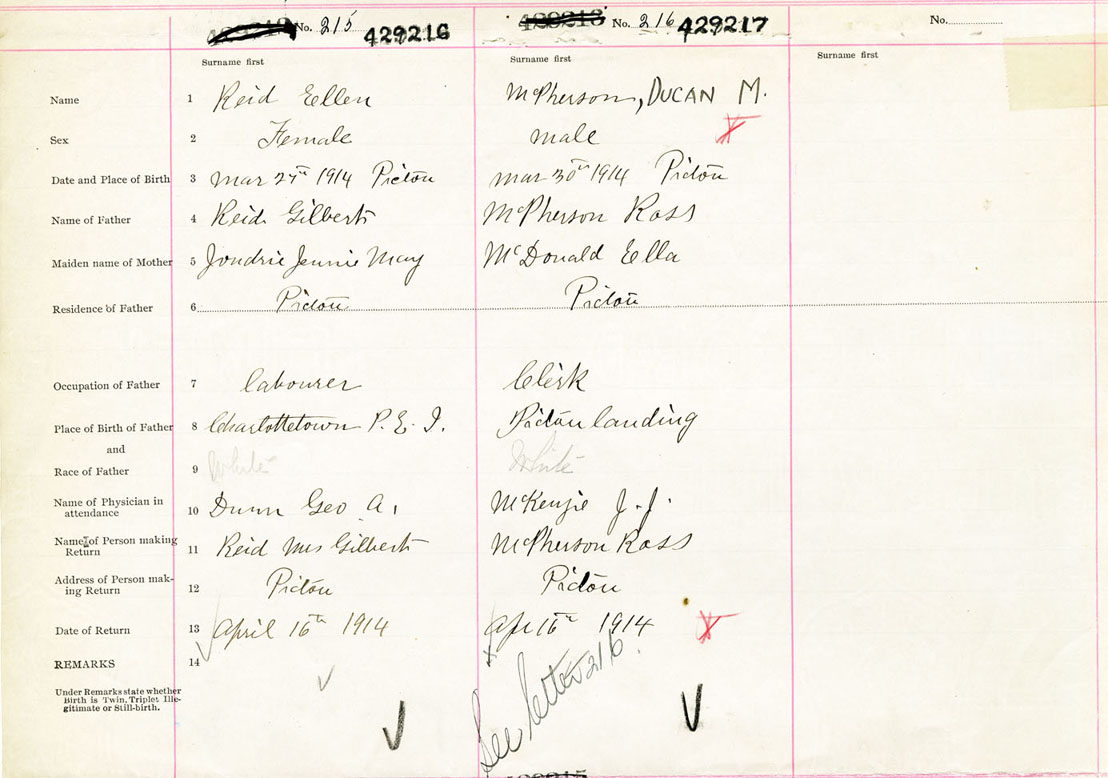 No. 215 429216
No. 216 429217
No.
Surname first
Surname first
Surname first
Name 1 Reid Eellen McPherson, DUCAN M.
Sex 2 Female male
Date and Place of Birth 3 Mar 27th 1914 Pictou mar 30th 1914 Pictou
Name of Father 4 Reid Gilbert McPherson Ross
Maiden name of Mother 5 Jondrie Jennie May McDonald Ella
Residence of Father 6 Pictou Pictou
Occupation of Father 7 labourer Clerk
Place of Birth of Father 8 Charlottetown P.E.I. Pictou landing
and
Race of Father 9 White White
Name of Physician in
attendance 10 Dunn Geo A. McKenzie J.J.
Name of Person making
Return 11 Reid Mrs Gilbert McPherson Ross
Address of Person mak-
ing Return 12 Pictou Pictou
Date of Return 13 April 16th 1914 Apr 16th 1914
REMARKS 14
See letter 216
Under Remarks state whether
Birth is Twin, Triplet Ille-
gitimate or Still-birth.